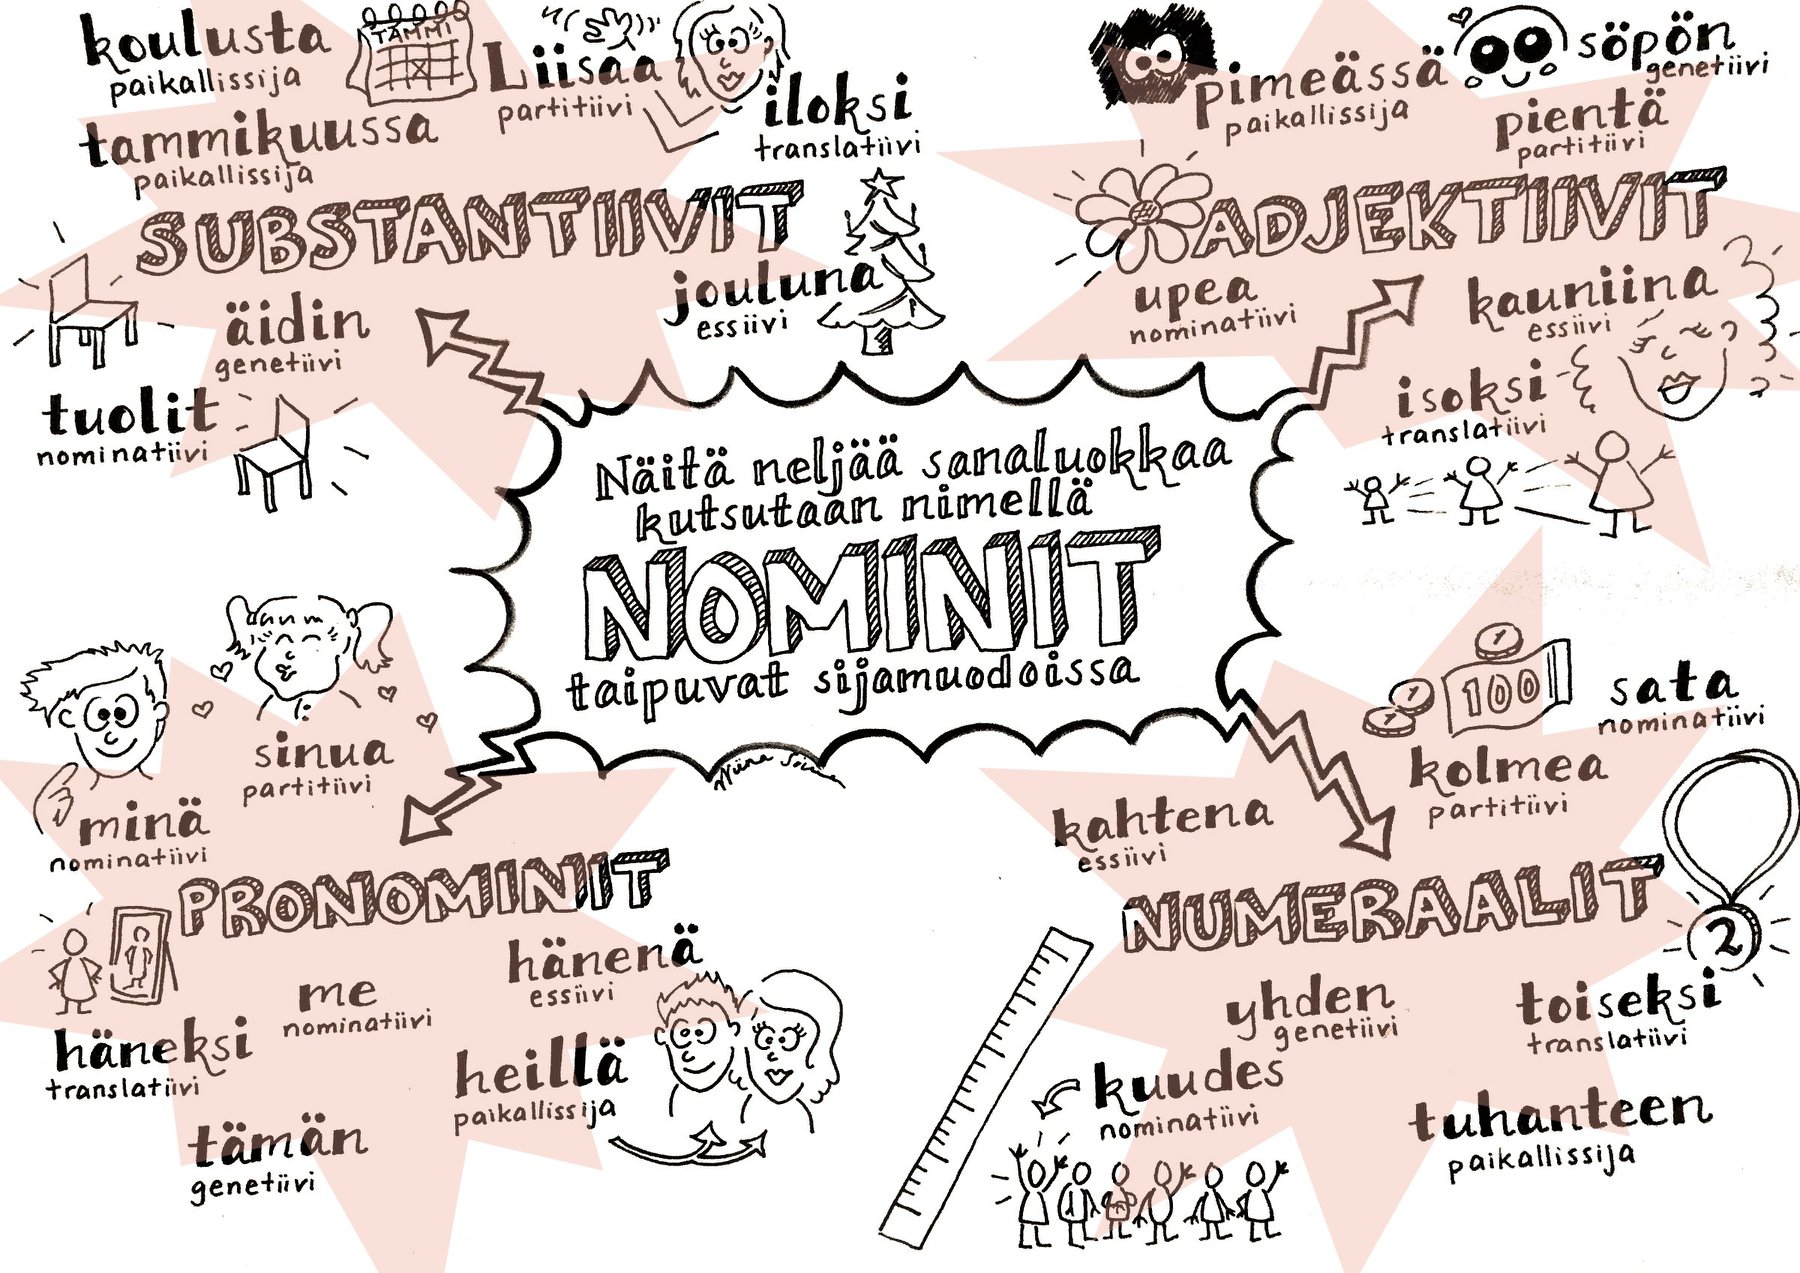 koulusta
paikallissija
TAMMI
Liisaa
partitiivi
iloksi
translatiivi
tammikuussa
paikallissija
SUBSTANTIIVIT
äidin
genetiivi
jouluna
essiivi
tuolit
nominatiivi
pimeässä
paikallissija
söpön
genetiivi
pientä
partitiivi
ADJEKTIIVIT
upea
nominatiivi
kauniina
essiivi
isoksi
translatiivi
Näitä neljää sanaluokkaa
kutsutaan nimellä
NOMINIT
taipuvat sijamuodoissa
sinua
partitiivi
minä
nominatiivi
PRONOMINIT
hänenä
essiivi
me
nominatiivi
häneksi
translatiivi
heillä
paikallissija
tämän
genetiivi
1
1
1
100
sata
nominatiivi
kolmea
partitiivi
kahtena
essiivi
NUMERAALIT
2
yhden
genetiivi
toiseksi
translatiivi
kuudes
nominatiivi
tuhanteen
paikallissija